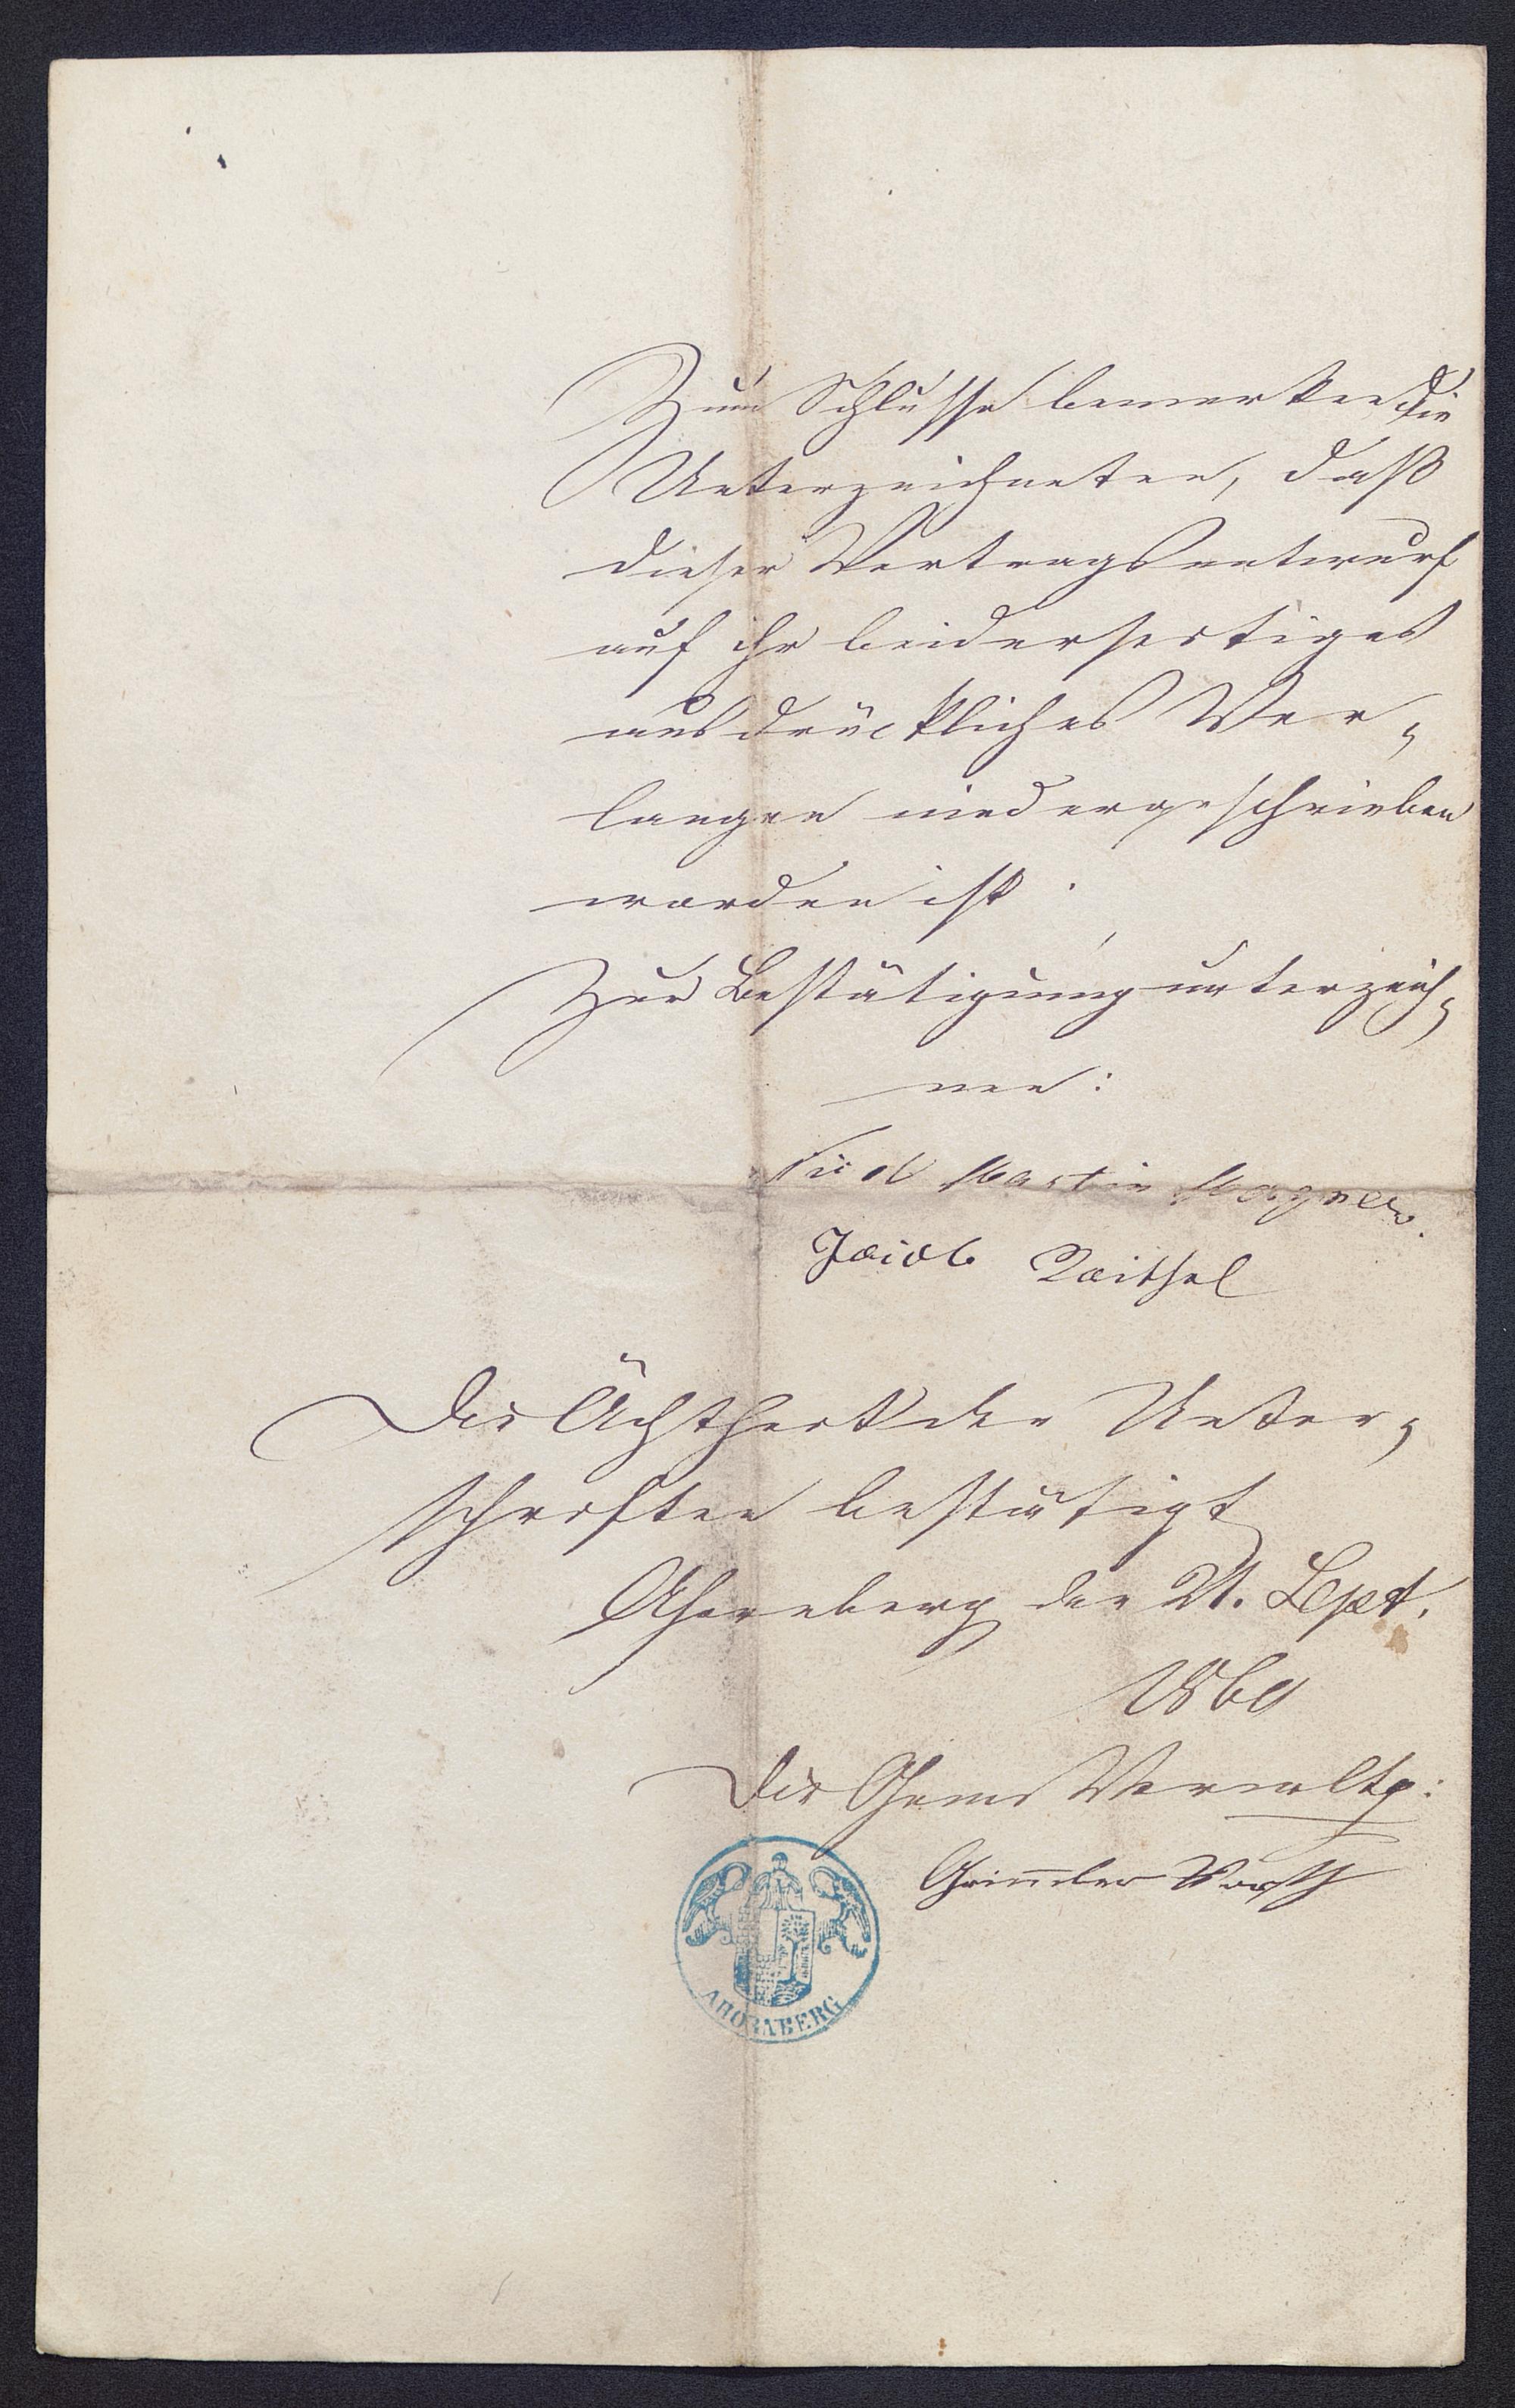 Zum Schlusse bemerken die
Unterzeichneten, daß
dieser Vertragsentwurf
auf ihr beiderseitiges
ausdrückliches Ver„
langen niedergeschrieben
worden ist.
Zur Bestätigung unterzeich„
nen:
Martin Wagner.
Jacob Raithel
Die Ächtheit der Unter„
schriften bestätigt
Ahornberg den 21. Sept.
186
Die Gem Verwaltg:
Grimmler Vorsth
AHORNBERG